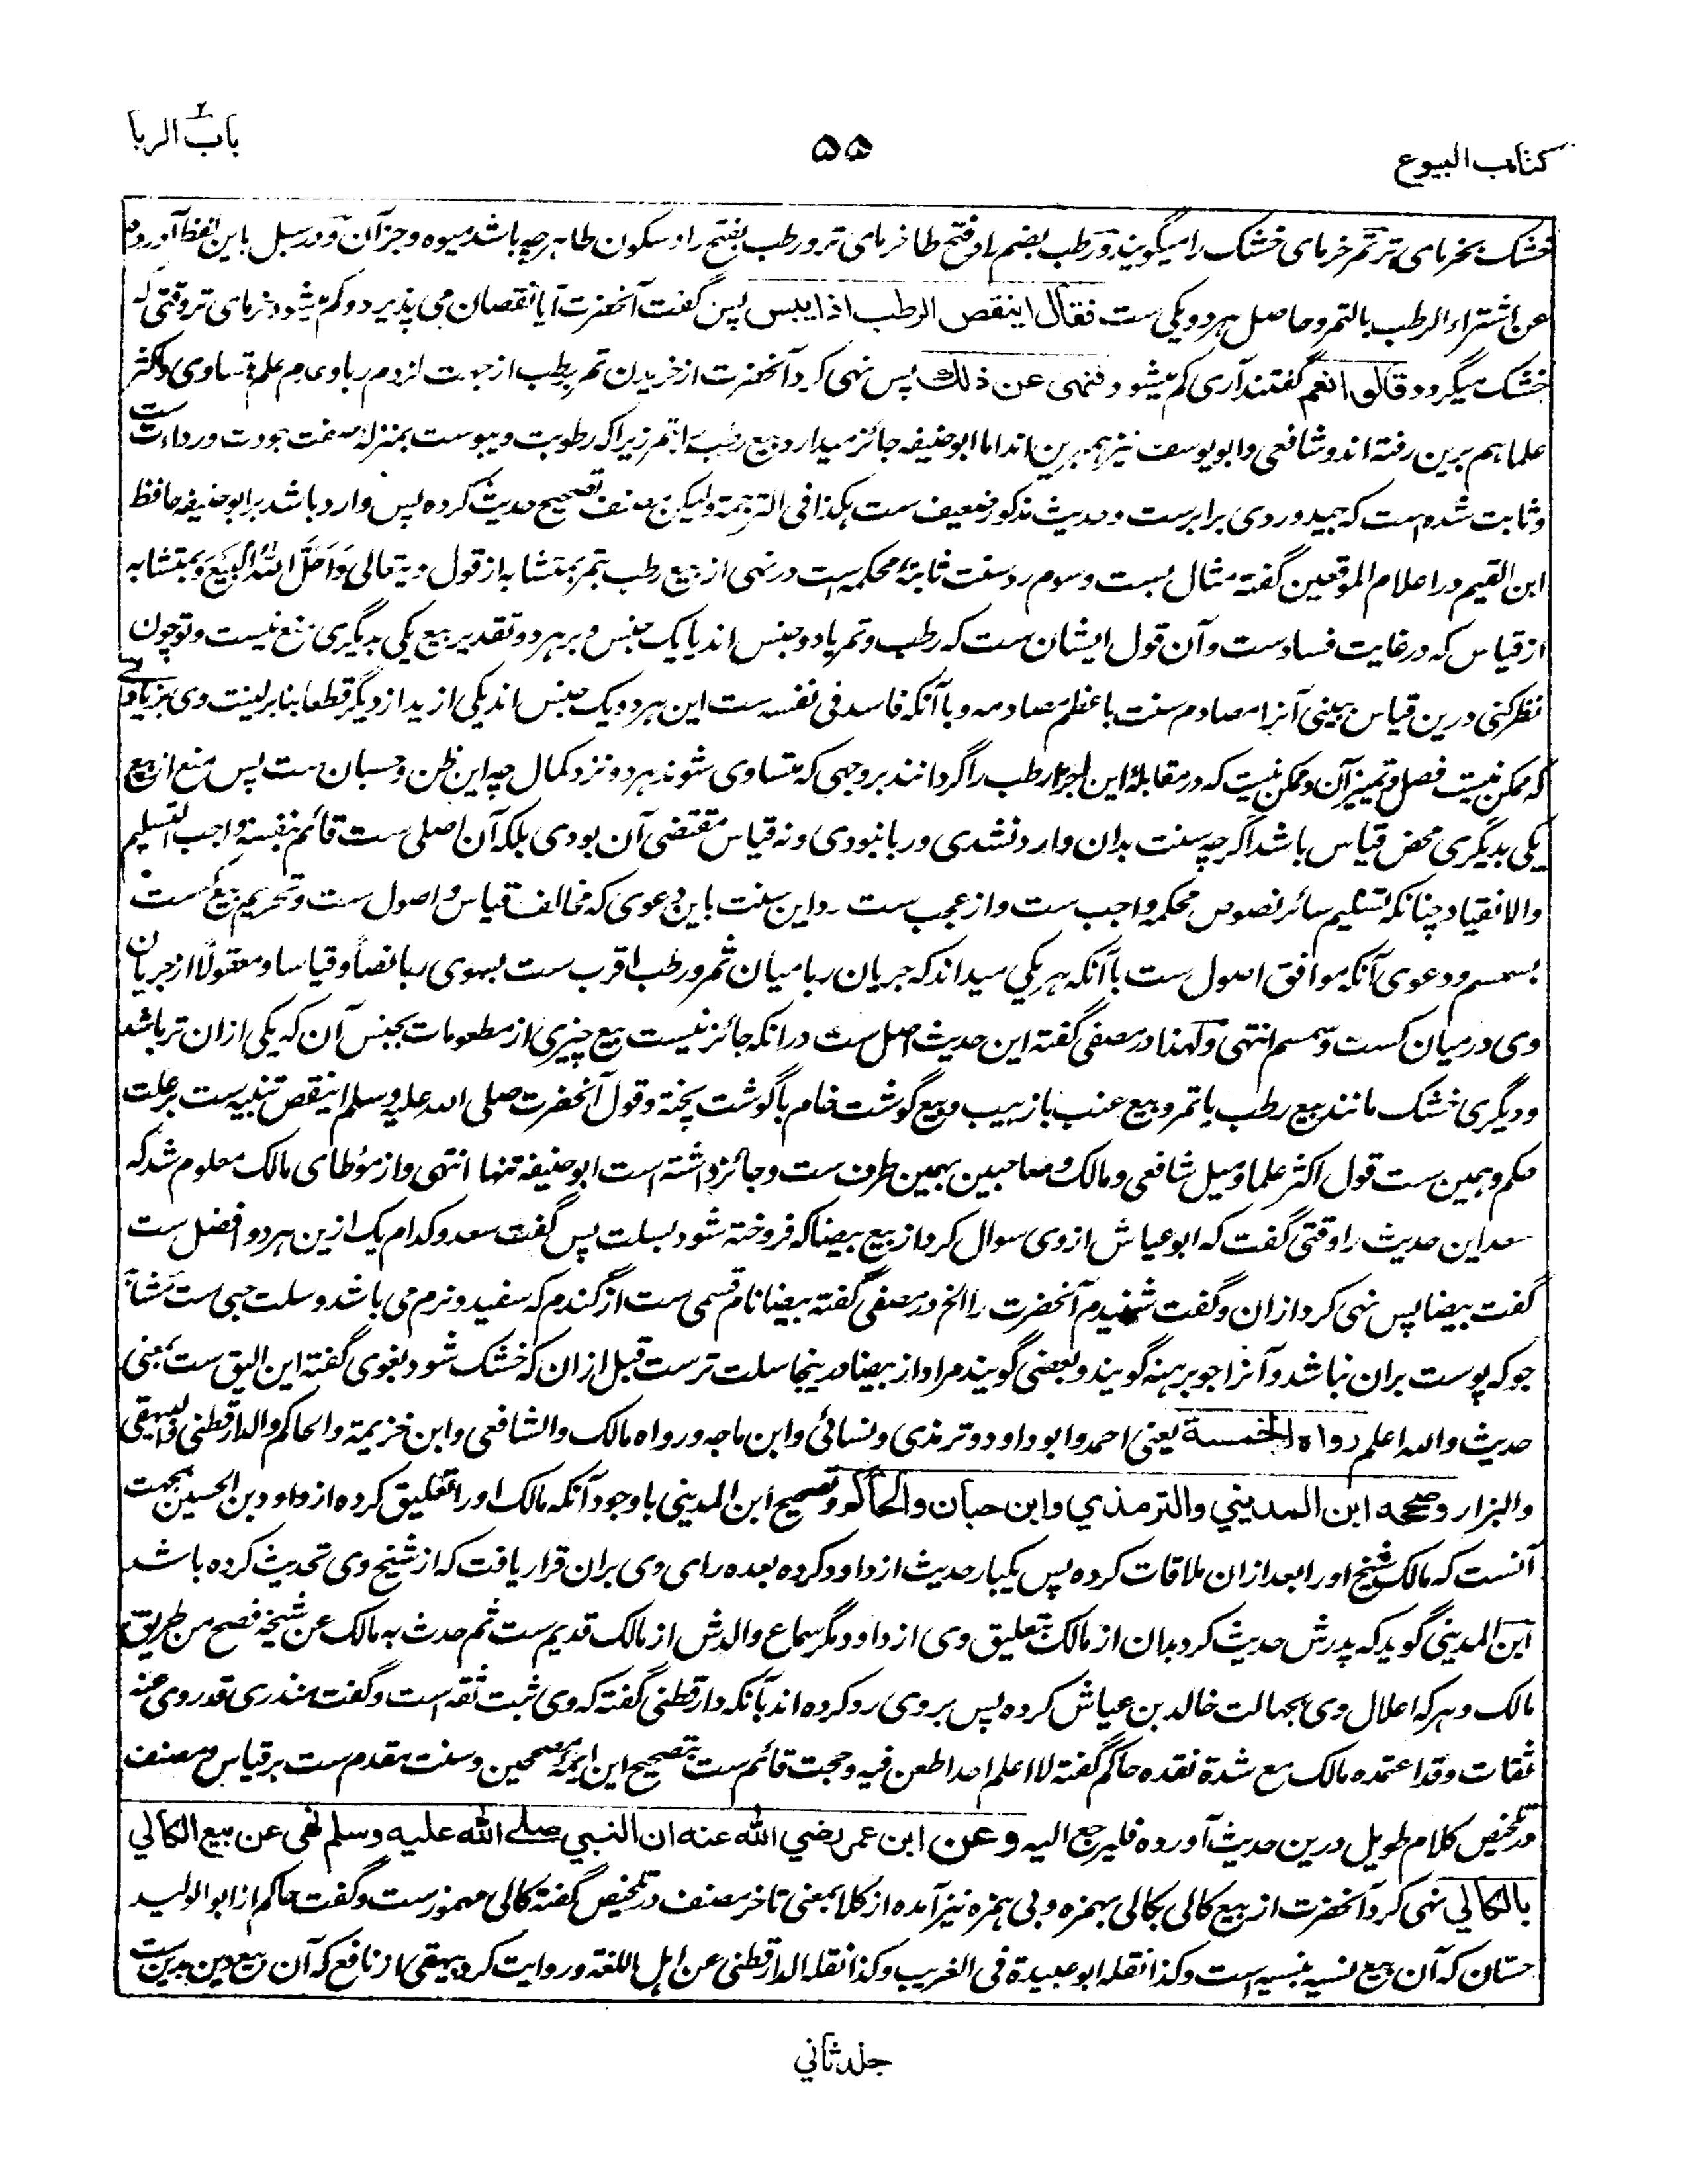 کتاب البیوع
۵۵
باب الربا
خشک بخرمای تر تمر خرمای خشک را میگویند و رطب بضم را و فتح طا خرمای تر و رطب بفتح را و سکون طا هرچه باشد میوه و جز آن و در سبل باین لفظ آورده
عن اشتراء الرطب بالتمر و حاصل هر دو یکی ست فقال اینقص الرطب اذا یبس پس گفت آنحضرت آیا نقصان می پذیرد و کم میشود خرمای تر وقتی که
خشک میگردد قالوا نعم گفتند آری کم میشود فنهی عن ذلک پس نهی کرد آنحضرت از خریدن تمر برطب از جهت لزوم ربا و عدم علم تساوی و اکثر
علما هم برین رفته اند و شافعی و ابو یوسف نیز همبرین اند اما ابو حنیفه جائز میدارد بیع رطب را بتمر زیرا که رطوبت و یبوست بمنزله صفت جودت و رداءت ست
و ثابت شده است که جید و ردی برابرست و حدیث مذکور ضعیف ست هکذا فی الترجمة ولیکن مصنف تصحیح حدیث کرده پس وارد باشد بر ابو حنیفه حافظ
ابن القیم در اعلام الموقعین گفته مثال بست و سوم رد سنت ثابتۀ محکمه است در نهی از بیع رطب بتمر بمتشابه از قول وی تعالی وَاَحَلَّ اللهُ الْبَیْعَ و بمتشابه
از قیاس که در غایت فسادست و آن قول ایشان ست که رطب و تمر یا دو جنس اند یا یک جنس و بر هر دو تقدیر بیع یکی بدیگری منع نیست و تو چون
نظر کنی درین قیاس ببینی آنرا مصادم سنت باعظم مصادمه و با آنکه فاسد فی نفسه ست این هر دو یک جنس اند یکی ازید از دیگر قطعا بنابر لینت وی بزیادتی
که ممکن نیست فصل و تمییز آن و ممکن نیست که در مقابلۀ این اجزا رطب را گردانند بروجهی که متساوی شوند هر دو نزد کمال چه این ظن و حسبان ست پس منع از بیع
یکی بدیگری محض قیاس باشد اگرچه سنت بدان وارد نشدی و ربا نبودی و نه قیاس مقتضی آن بودی بلکه آن اصلی ست قائم بنفسه واجب التسلیم
والانقیاد چنانکه تسلیم سائر نصوص محکمه واجب ست و از عجب ست رد این سنت باین دعوی که مخالف قیاس و اصول ست و تحریم بیع کست
بسمسم و دعوی آنکه موافق اصول ست با آنکه هر یکی میداند که جریان ربا میان ثمر و رطب اقرب ست بسوی ربا نصاً و قیاسا و معقولًا از جریان
وی در میان کست و سمسم انتهی و لهذا در مصفی گفته این حدیث اصل ست در انکه جائز نیست بیع چیزی از مطعومات بجنس آن که یکی ازان تر باشد
و دیگری خشک مانند بیع رطب با تمر و بیع عنب با زبیب و بیع گوشت خام با گوشت پخته و قول آنحضرت صلی الله علیه وسلم اینقص تنبیه ست بر علت
حکم و همین ست قول اکثر علما و میل شافعی و مالک و صاحبین بهمین طرف ست و جائز داشته است ابو حنیفه تنها انتهی و از مؤطای مالک معلوم شد که
سعد این حدیث را وقتی گفت که ابو عیاش از وی سوال کرد از بیع بیضا که فروخته شود بسلت پس گفت سعد و کدام یک ازین هر دو افضل ست
گفت بیضا پس نهی کرد ازان و گفت شنیدم آنحضرت را الخ در مصفی گفته بیضا نام قسمی ست از گندم که سفید و نرم می باشد و سلت حبی ست مشابه
جو که پوست بران نباشد و آنرا جو برهنه گویند و بعضی گویند مراد از بیضا درینجا سلت ترست قبل ازان که خشک شود بغوی گفته این الیق ست بمعنی
حدیث والله اعلم رواه الخمسة یعنی احمد و ابو داود و ترمذی و نسائی و ابن ماجه و رواه مالک والشافعی و ابن خزیمة والحاکم والدارقطنی والبیهقی
والبزار وصححه ابن المدیني والترمذي وابن حبان والحاکم و تصحیح ابن المدینی باوجود آنکه مالک او را تعلیق کرده از داود بن الحسین بجهت
آنست که مالک شیخ او را بعد ازان ملاقات کرده پس یکبار حدیث از داود کرده بعده رای وی بران قرار یافت که از شیخ وی تحدیث کرده باشد
ابن المدینی گوید که پدرش حدیث کرد بدان از مالک بتعلیق وی از داود مگر سماع والدش از مالک قدیم ست ثم حدث به مالک عن شیخه فصح من طریق
مالک و هرکه اعلال وی بجهالت خالد بن عیاش کرده پس بروی رد کرده اند بآنکه دارقطنی گفته که وی ثبت ثقه است و گفت منذری قد روی عنه
ثقات وقد اعتمده مالک مع شدة نقده حاکم گفته لا اعلم احدا طعن فیه و حجت قائم ست بتصحیح این ایمۀ مصححین و سنت مقدم ست بر قیاس و مصنف
در تلخیص کلام طویل درین حدیث آورده فلیرجع الیه وعن ابن عمر رضي الله عنه ان النبي صلے الله علیه وسلم نهی عن بیع الکالي
بالکالي نهی کرد آنحضرت از بیع کالی بکالی بهمزه و بی همزه نیز آمده از کلا بمعنی تاخر مصنف در تلخیص گفته کالی مهموزست و گفت حاکم از ابو الولید
حسان که آن بیع نسیه بنسیه است و کذا نقله ابو عبیدة فی الغریب و کذا نقله الدارقطنی عن اهل اللغة و روایت کرد بیهقی از نافع که آن بیع دین بدین ست
جلد ثاني